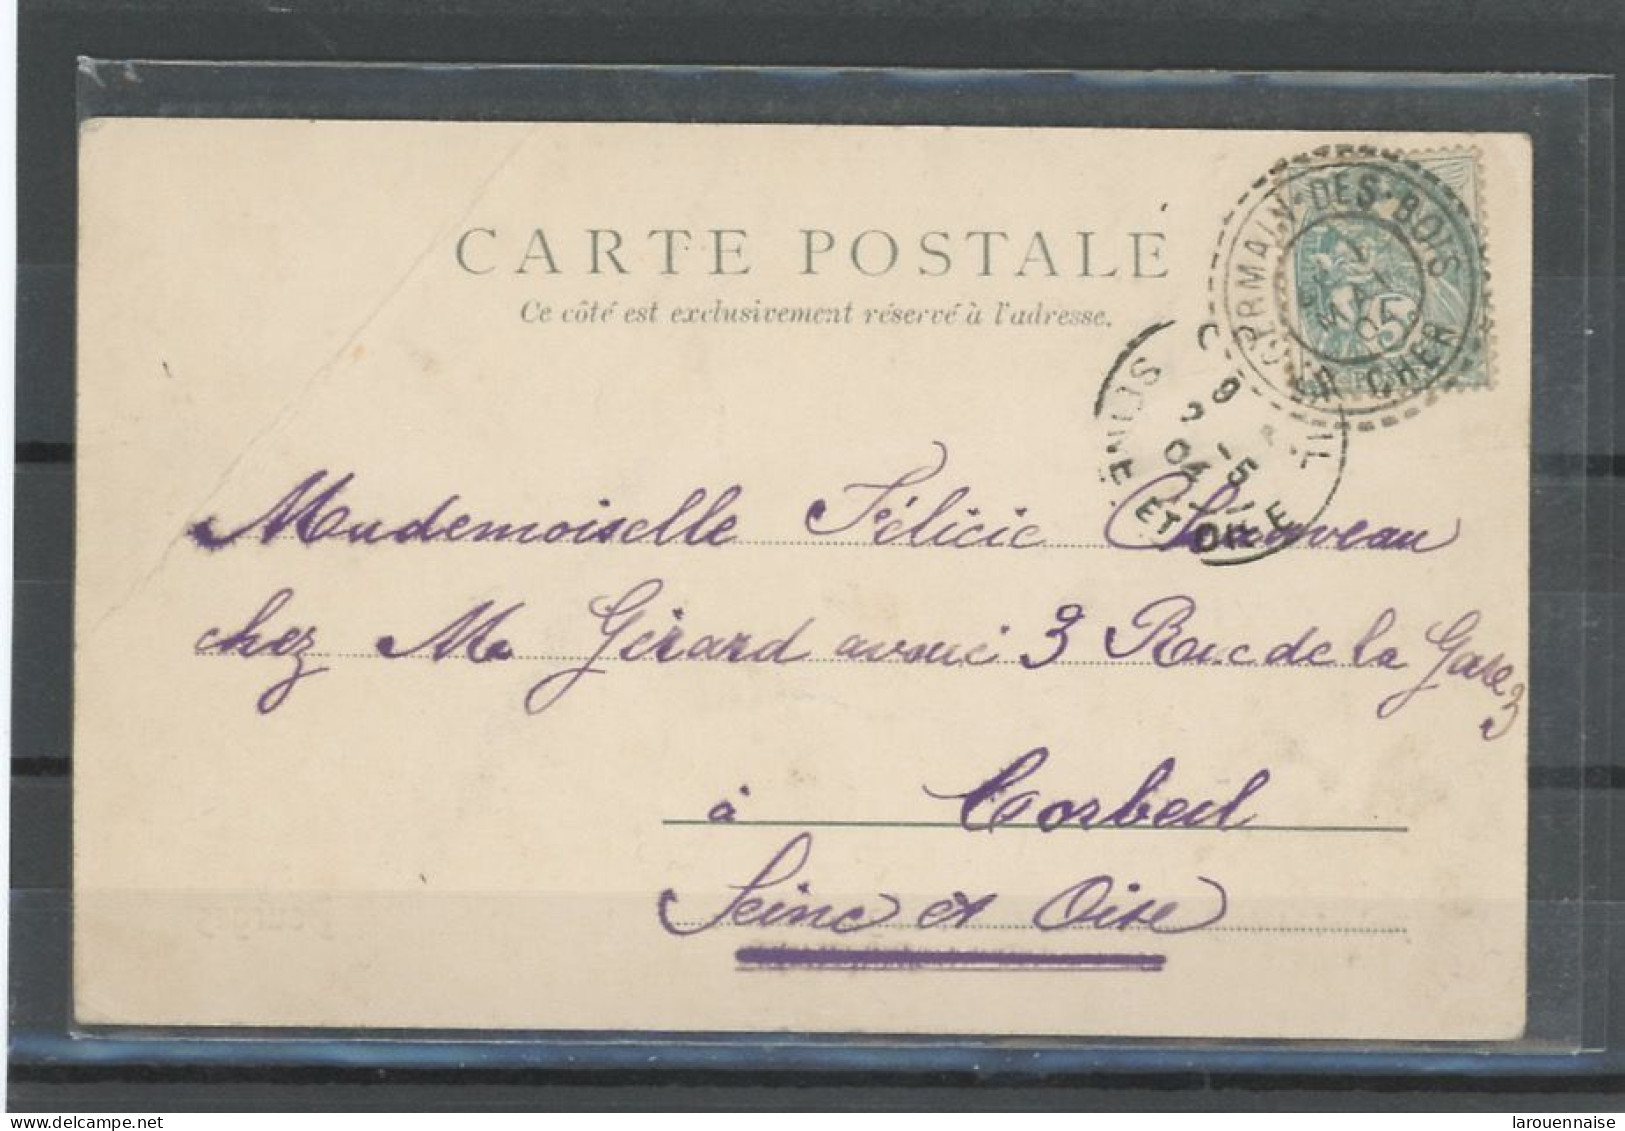 CARTE POSTALE
Ce côté est exclusivement réservé à l'adresse.
GERMAIN-DES-BOIS
CHER
MAI
05
SEINE
ET OISE
Mademoiselle Félicie
chez Me Gérard avoué 3 Rue de la Gare 3
à Corbeil
Seine et Oise
delcampe.net
larouennaise